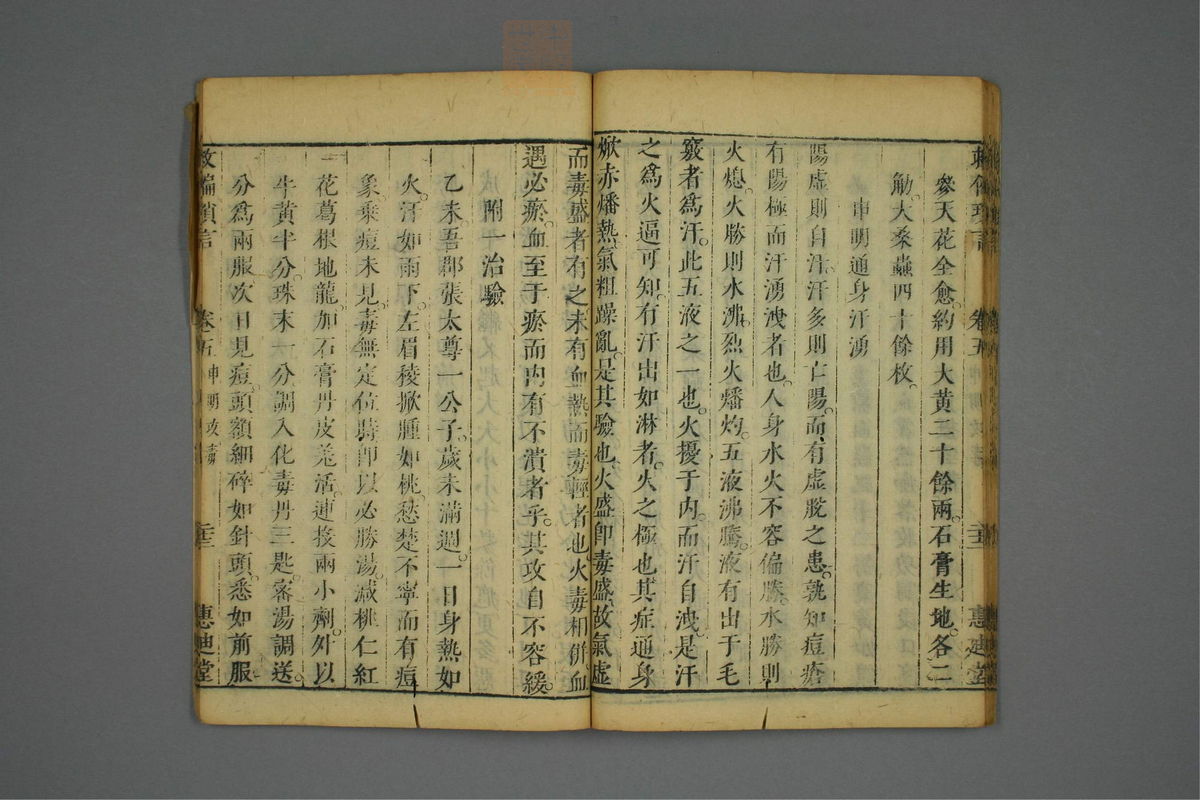 救偏瑣言 卷五 二十二 惠迪堂
參天花全愈約用大黃二十餘兩石膏生地各二
觔大桑蟲四十餘枚
申明通身汗湧
陽虛則自汗汗多則亡陽而有虛脫之患孰知痘瘡
有陽極而汗湧洩者也人身水火不容偏勝水勝則
火熄火勝則水沸烈火燔灼五液沸騰液有出于毛
竅者為汗此五液之一也火擾于內而汗自洩是汗
之為火逼可知有汗出如淋者火之極也其症通身
焮赤燔熱氣粗躁亂是其驗也火盛即毒盛故氣虛
而毒盛者有之未有血熱而毒輕者也火毒相併血
遇必瘀血至于瘀而內有不潰者乎其攻自不容緩
附一治驗
乙未吾郡張太尊一公子歲未滿週一日身熱如
火汗如雨下左眉稜掀腫如桃愁楚不寧而有痘
象乘痘未見毒無定位時即以必勝湯減桃仁紅
花葛根地龍加石膏丹皮羌活連投兩小劑外以
牛黃半分珠末一分調入化毒丹三匙蜜湯調送
分為兩服次日見痘頭額細碎如針頭悉如前服
救偏瑣言 卷五 申明攻毒 二十三 惠迪堂